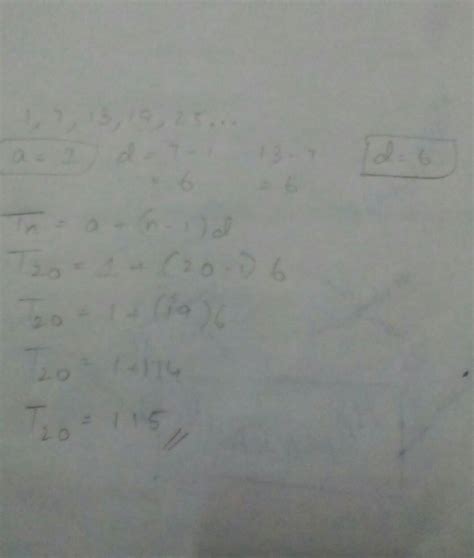 1, 7, 13, 19, 25...
a = 1 d = 7 - 1 13 - 7 d = 6
= 6 = 6
Tn = a + (n - 1)d
T20 = 1 + (20 - 1) 6
T20 = 1 + (19) 6
T20 = 1 + 114
T20 = 115 //